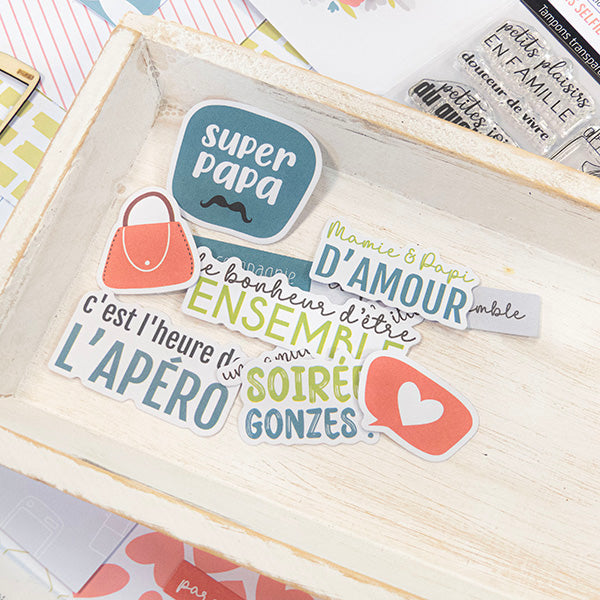 Tampons transparents
petits plaisirs
EN FAMILLE
douceur de vivre
petites
super
papa
Mamie & Papi
D'AMOUR
le bonheur d'être
ENSEMBLE
c'est l'heure de
L'APÉRO
SOIRÉE
GONZES